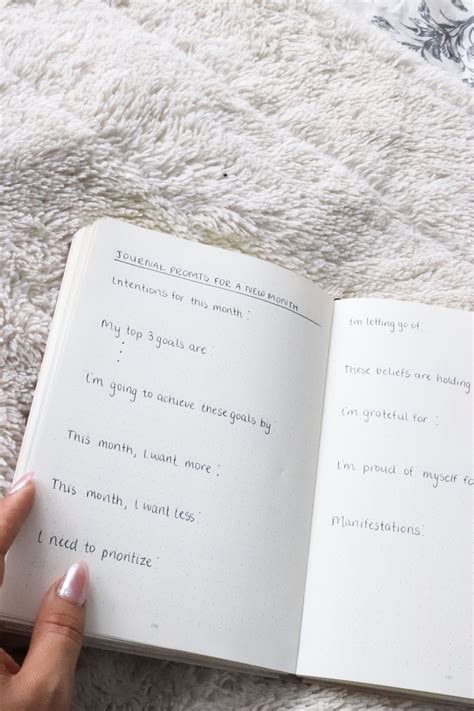 JOURNAL PROMTS FOR A NEW MONTH
Intentions for this month:
My top 3 goals are:
I'm going to achieve these goals by:
This month, I want more:
This month, I want less:
I need to prioritize:
I'm letting go of:
These beliefs are holding
I'm grateful for:
I'm proud of myself fo
Manifestations: